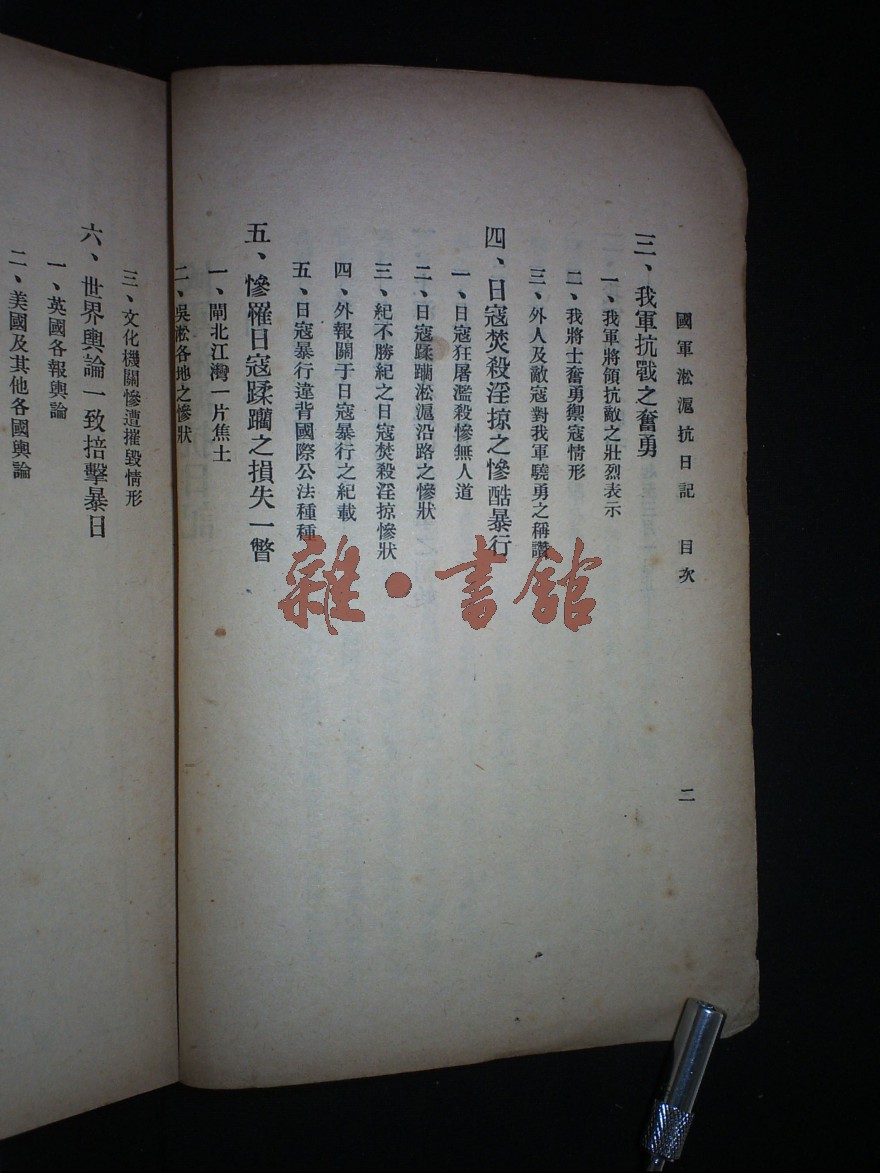 國軍淞滬抗日記 目次 二
三、我軍抗戰之奮勇
一、我軍將領抗敵之壯烈表示
二、我將士奮勇禦寇情形
三、外人及敵寇對我軍驍勇之稱讚
四、日寇焚殺淫掠之慘酷暴行
一、日寇狂屠濫殺慘無人道
二、日寇蹂躪淞滬沿路之慘狀
三、紀不勝紀之日寇焚殺淫掠慘狀
四、外報關于日寇暴行之紀載
五、日寇暴行違背國際公法種種
五、慘罹日寇蹂躪之損失一瞥
一、閘北江灣一片焦土
二、吳淞各地之慘狀
三、文化機關慘遭摧毀情形
六、世界輿論一致掊擊暴日
一、英國各報輿論
二、美國及其他各國輿論
雜·書館